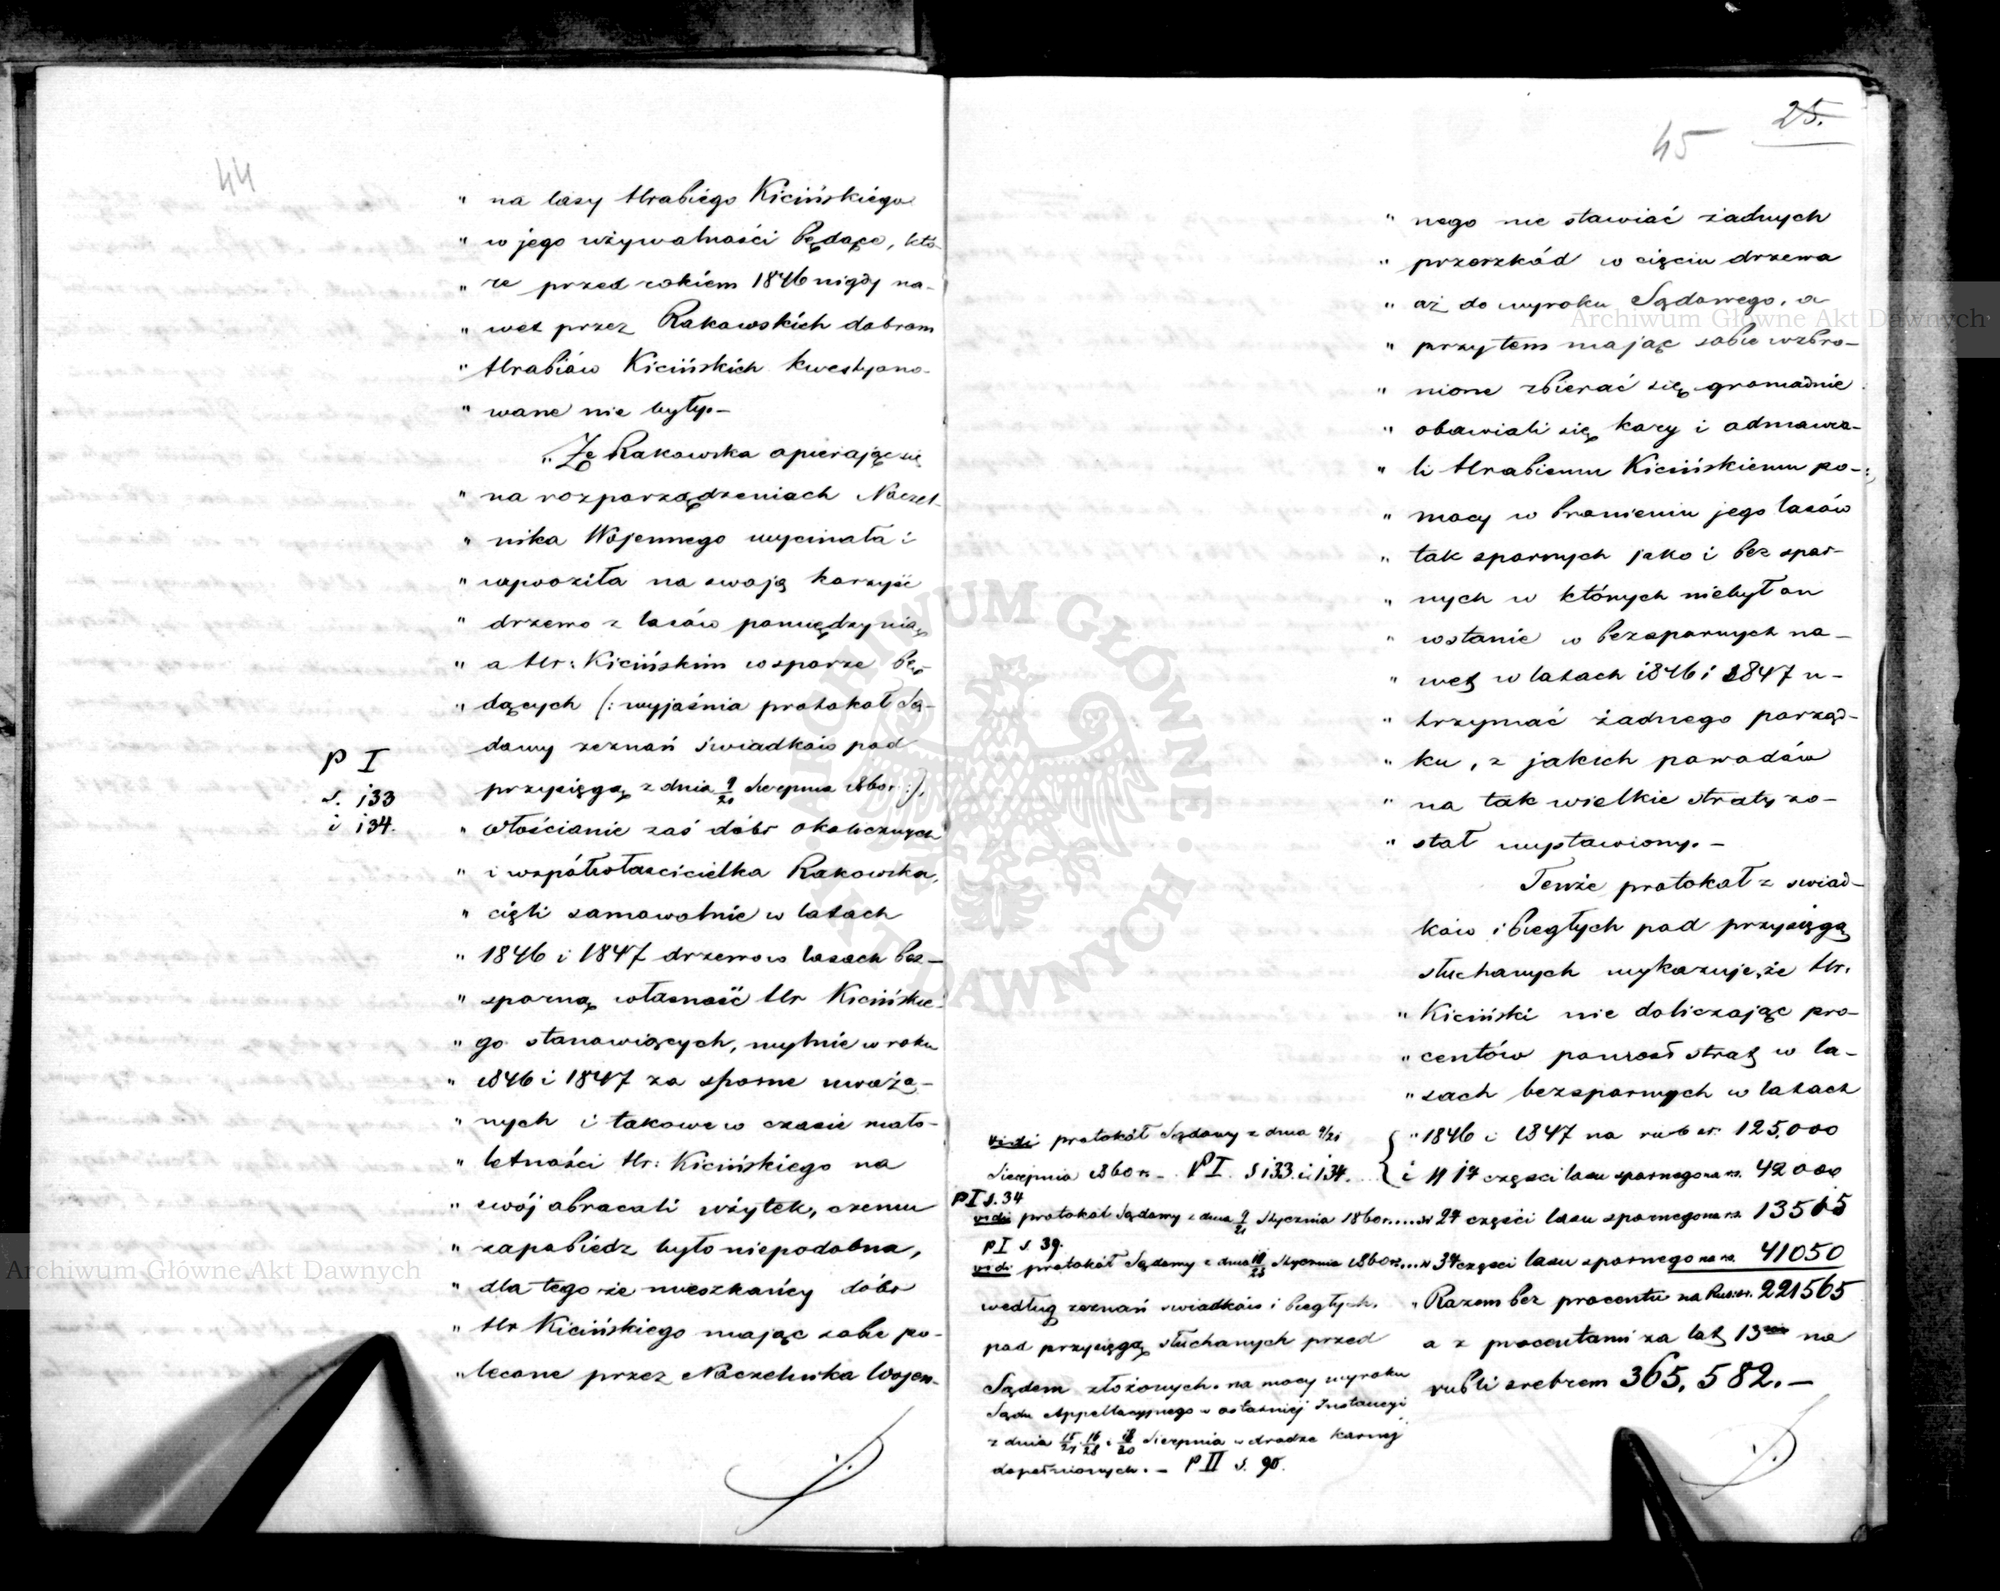 44
" na lasy Hrabiégo Kicińskiégo
" w jego używalności będące, któ-
" re przed rokiém 1846 nigdy na-
" wet przez Rakowskich dobrom
" Hrabiów Kicińskich kwestyono-
" wane nie były.–
„ Że Rakowska opierając się
" na rozporządzeniach Naczel-
" nika Wojennego wycinała i
" wywoziła na swoją korzyść
" drzewo z lasów pomiędzy nią
" a Hr: Kicińskim w sporze bę-
" dących (: wyjaśnia protokół Są-
dowy zeznań świadków pod
przysięgą z dnia 9/21 Sierpnia 1860 r :),
P I
s. 133
i 134.
" włościanie zaś dóbr okolicznych
" i współwłaścicielka Rakowska,
" cięli samowolnie w latach
" 1846 i 1847 drzewo w lasach bez–
" sporną własność Hr Kicińskie-
" go stanowiących, mylnie w roku
" 1846 i 1847 za sporne uważa–
" nych i takowe w czasie mało-
" letności Hr: Kicińskiego na
" swój obracali użytek, czemu
" zapobiedz było niepodobna,
" dla tego że mieszkańcy dóbr
" Hr Kicińskiego mając sobie po-
" lecone przez Naczelnika Wojen-
25.
45
" nego nie stawiać żadnych
" przeszkód w cięciu drzewa
" aż do wyroku Sądowego, a
" przytem mając sobie wzbro–
" nione zbierać się gromadnie
" obawiali się kary i odmawia-
" li Hrabiemu Kicińskiemu po-
" mocy w bronieniu jego lasów
" tak spornych jako i bez spor-
" nych w których niebył on
" wstanie w bezspornych na–
" wet w latach 1846 i 1847 u–
" trzymać żadnego porząd-
" ku, z jakich powodów
" na tak wielkie straty zo–
" stał wystawiony.–
Tenże protokół z świad–
ków i biegłych pod przysięgą
słuchanych wykazuje, że Hr.
" Kiciński nie doliczając pro-
" centów poniósł strat w la–
" sach bezspornych w latach
" 1846 i 1847 na rub sr. 125,000
i w 1ej części lasu spornego na rs. 42000
w 2ej części lasu spornego na rs. 13515
w 3ej części lasu spornego na rs. 41050
„ Razem bez procentu na Rub: sr. 221565
a z procentami za lat 13 na
rubli srebrem 365,582.–
vidi protokół Sądowy z dnia 9/21
Sierpnia 1860 r.– P I. s 133. i 134.
P I s. 34
vidi protokół Sądowy z dnia 9/21 Stycznia 1860 r.....
P I s. 39.
vidi protokół Sądowy z dnia Stycznia 1860 r....
według zeznań świadków i biegłych,
pod przysięgą słuchanych przed
Sądem złożonych. na mocy wyroku
Sądu Appellacyjnego w ostatniej Instancyi
z dnia 15/27 16/28 i 18/30 Sierpnia w drodze karnej
dopełnionych.– P II s. 90.
Archiwum Główne Akt Dawnych
Archiwum Główne Akt Dawnych
ARCHIWUM GŁÓWNE AKT DAWNYCH